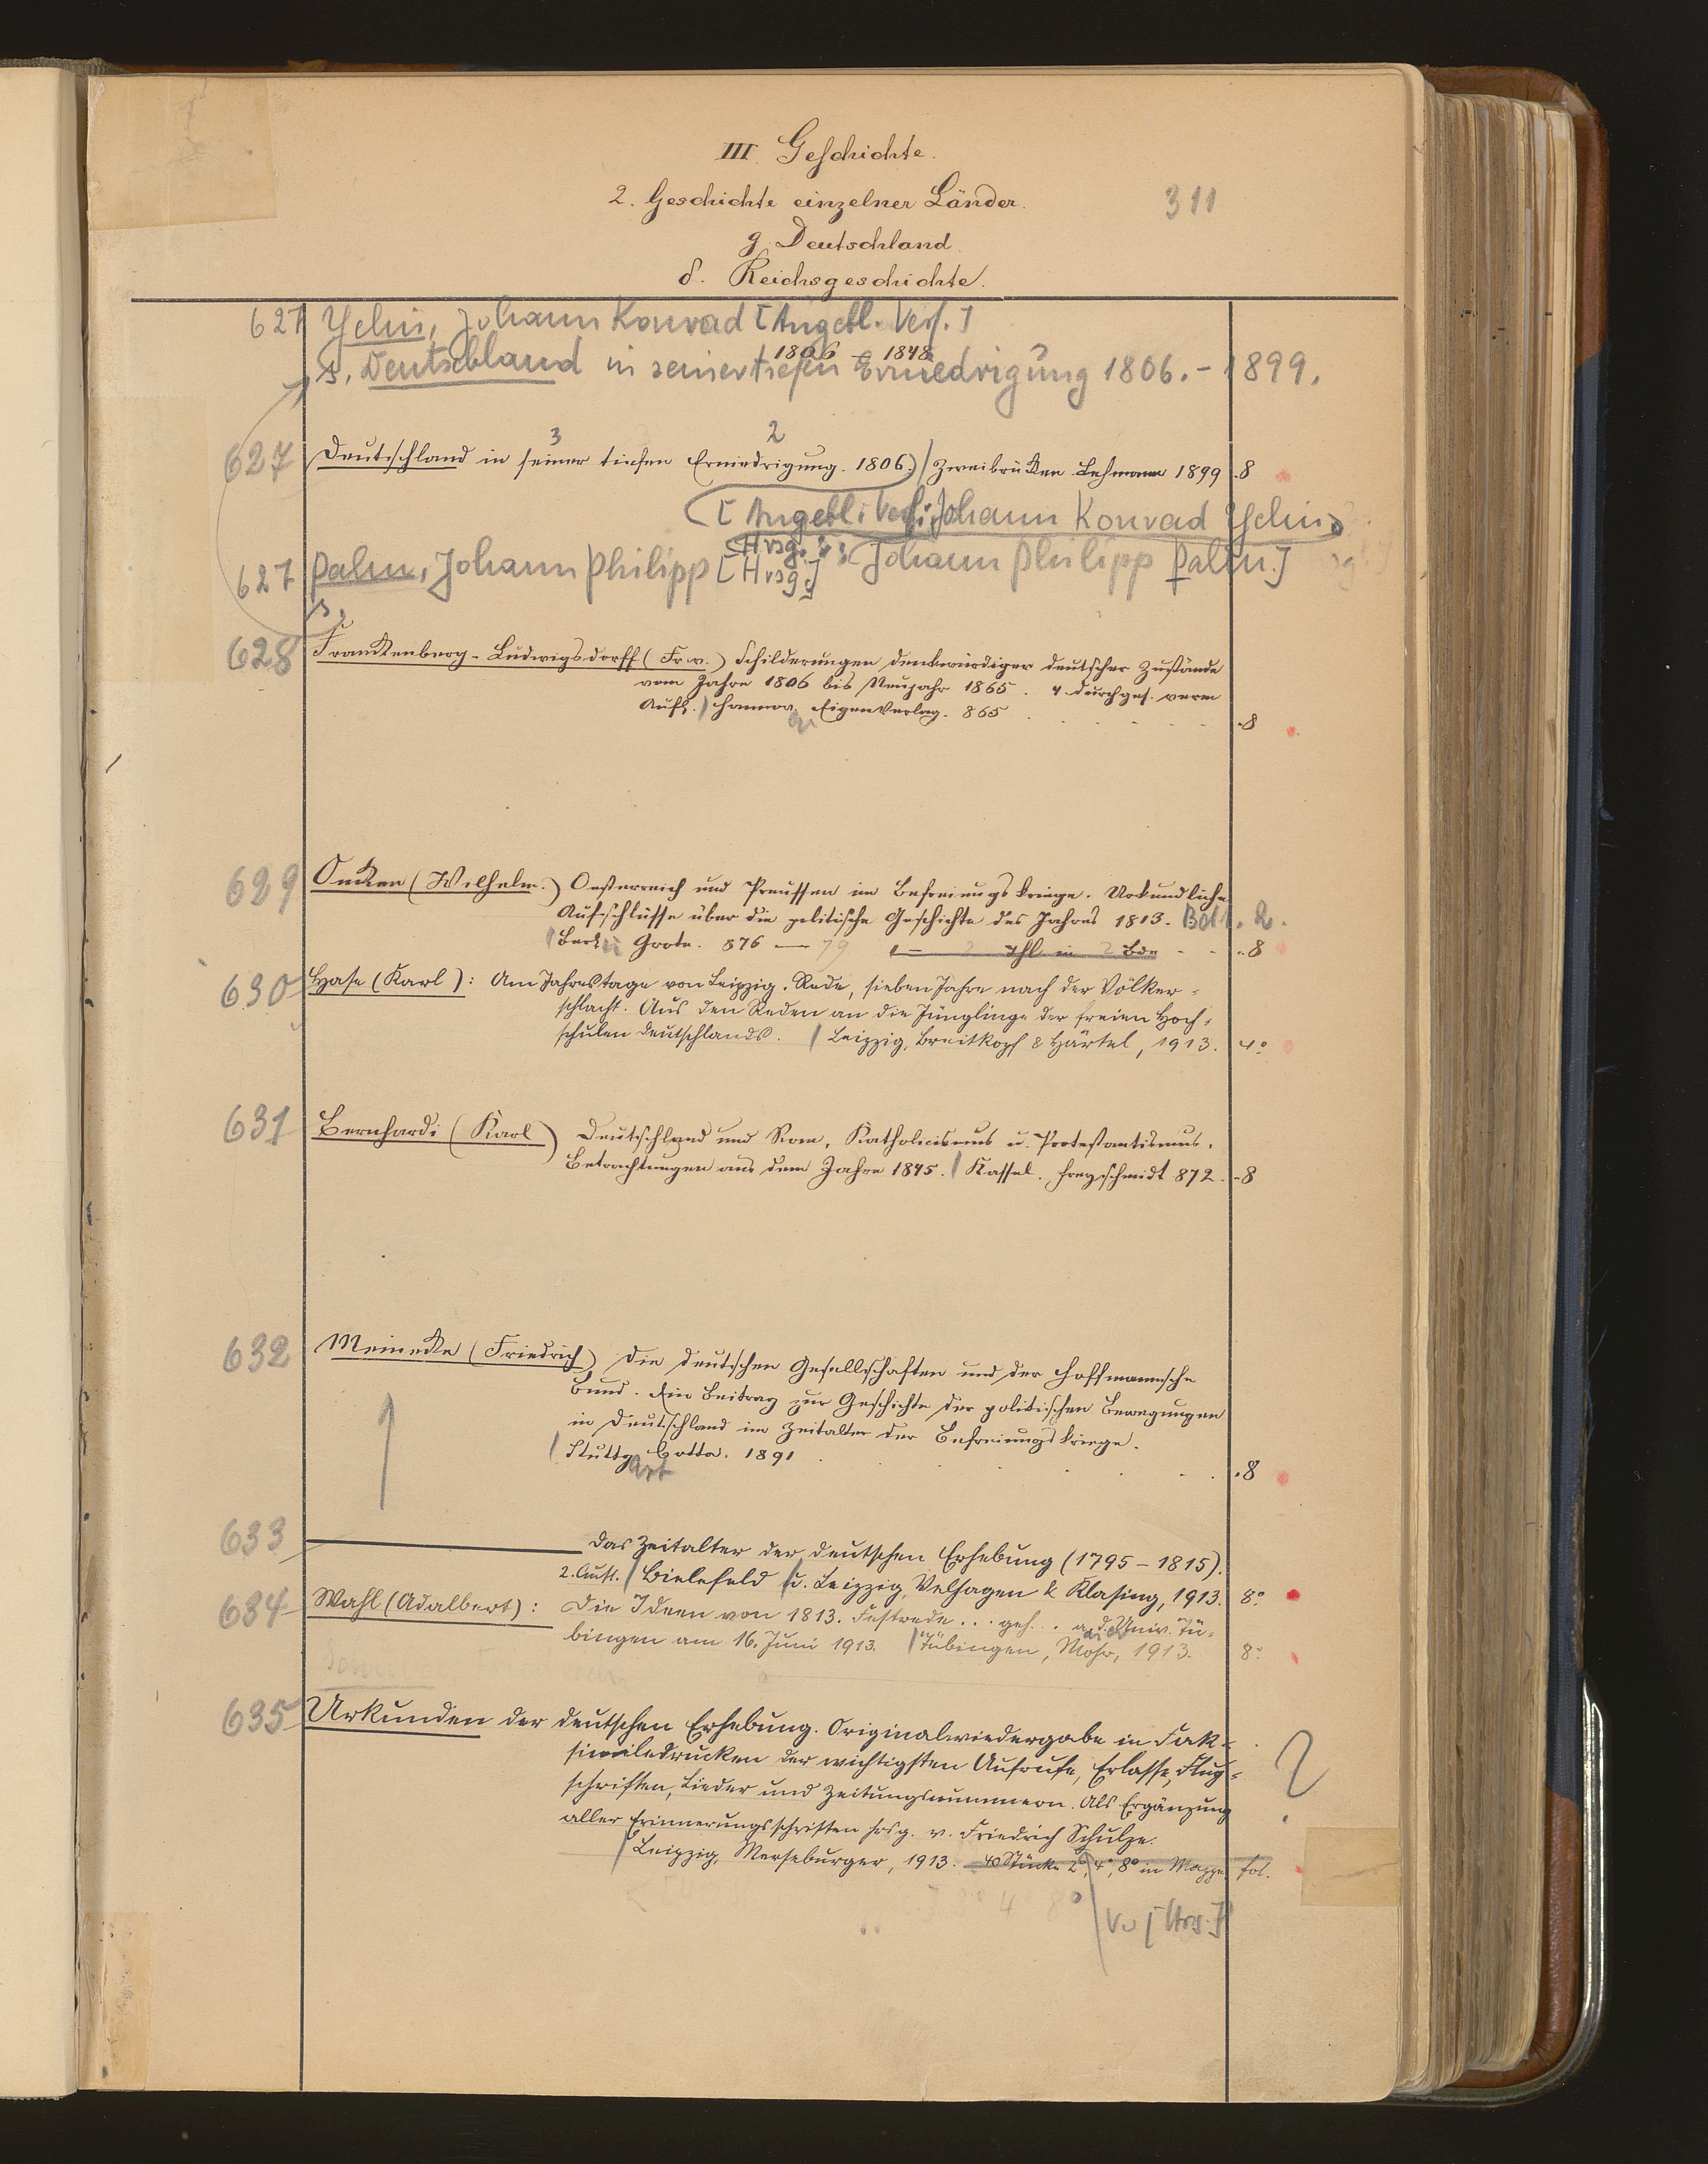 III. Geschichte.
2. Geschichte einzelner Länder.
311
g. Deutschland
δ. Reichsgeschichte.
1806 – 1848
627 Yelin, Johann Konrad [Angebl. Verf.]
s. Deutschland in seiner tiefen Erniedrigung 1806. – 1899.
3 2
627 Deutschland in seiner tiefen Erniedrigung. 1806.) / Zweibrücken Lehmann 1899 .8
[Angebl. Verf.: Johann Konrad Yelin,
Hrsg.: Johann Philipp Palm.]
627 Palm, Johann Philipp [Hrsg.]
s.
628 Franckenberg-Ludwigsdorff (Fr. v.) Schilderungen denkwürdiger deutscher Zustände
vom Jahre 1806 bis Neujahr 1865. 4 durchges. verm
Aufl. / Hannov. Eigenverlag. 865 .8
629 Oncken (Wilhelm.) Oesterreich und Preussen im Befreiungskriege. Urkundliche
Aufschlüsse über die politische Geschichte des Jahres 1813. Bd 1. 2.
/ Berlin Grote. 876 — 79 2 Thl in 2 Bde .8
630 Hase (Karl): Am Jahrestage von Leipzig. Rede, sieben Jahre nach der Völker-
schlacht. Aus den Reden an die Jünglinge der freien Hoch-
schulen Deutschlands. / Leipzig, Breitkopf & Härtel, 1913. 4°
631 Bernhardi (Karl) Deutschland und Rom, Katholicismus u. Protestantismus.
Betrachtungen aus dem Jahre 1845. / Kassel. Freyschmidt 872. .8
632 Meinecke (Friedrich) Die deutschen Gesellschaften und der Hoffmannsche
Bund. Ein Beitrag zur Geschichte der politischen Bewegungen
in Deutschland im Zeitalter der Befreiungskriege.
/ Stuttgart Cotta. 1891 .8
633 — Das Zeitalter der deutschen Erhebung (1795–1815).
2. Aufl. / Bielefeld u. Leipzig, Velhagen & Klasing, 1913. 8°
634 Wahl (Adalbert): Die Ideen von 1813. Festrede... geh... a. d. Univ. Tü-
bingen am 16. Juni 1913. / Tübingen, Mohr, 1913. 8°
635 Urkunden der deutschen Erhebung. Originalwiedergabe in Fak-
similedrucken der wichtigsten Aufrufe, Erlasse, Flug-
schriften, Lieder und Zeitungsnummern. Als Ergänzung
aller Erinnerungsschriften hrsg. v. Friedrich Schulze.
/ Leipzig, Merseburger, 1913. 40 Stücke 2°, 4°, 8° in Mappe fol.
?
V. [Hrs.]